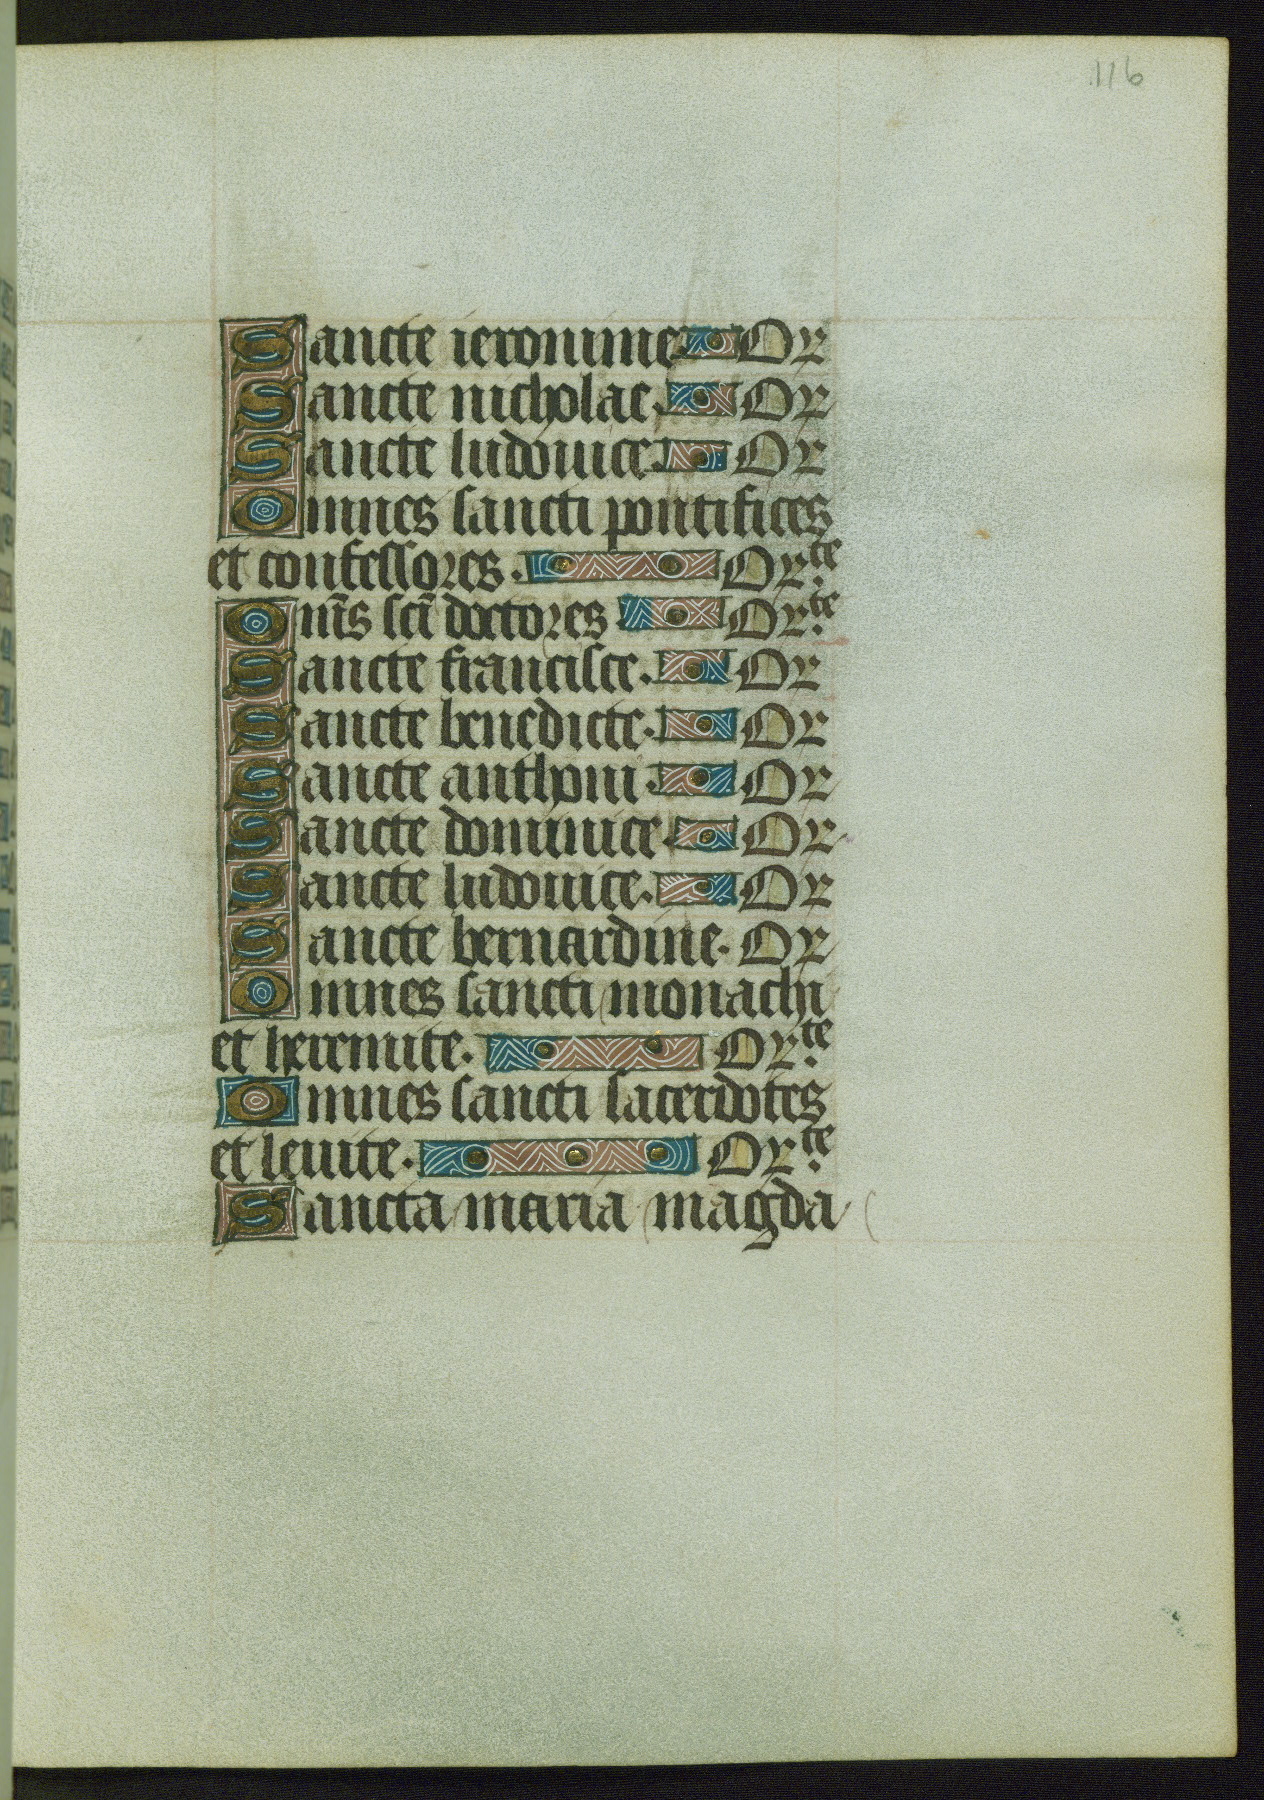 116
Sancte ieronime Or
Sancte nicholae. Or
Sancte ludouice. Or
Omnes sancti pontifices
et confessores. Or.te
Om̄s sc̄i doctores Or.te
Sancte francisce. Or
Sancte benedicte. Or
Sancte anthoni. Or
Sancte dominice. Or
Sancte ludouice. Or
Sancte bernardine. Or
Omnes sancti monachi
et heremite. Or.te
Omnes sancti sacerdotes
et leuite. Or.te
Sancta maria magda